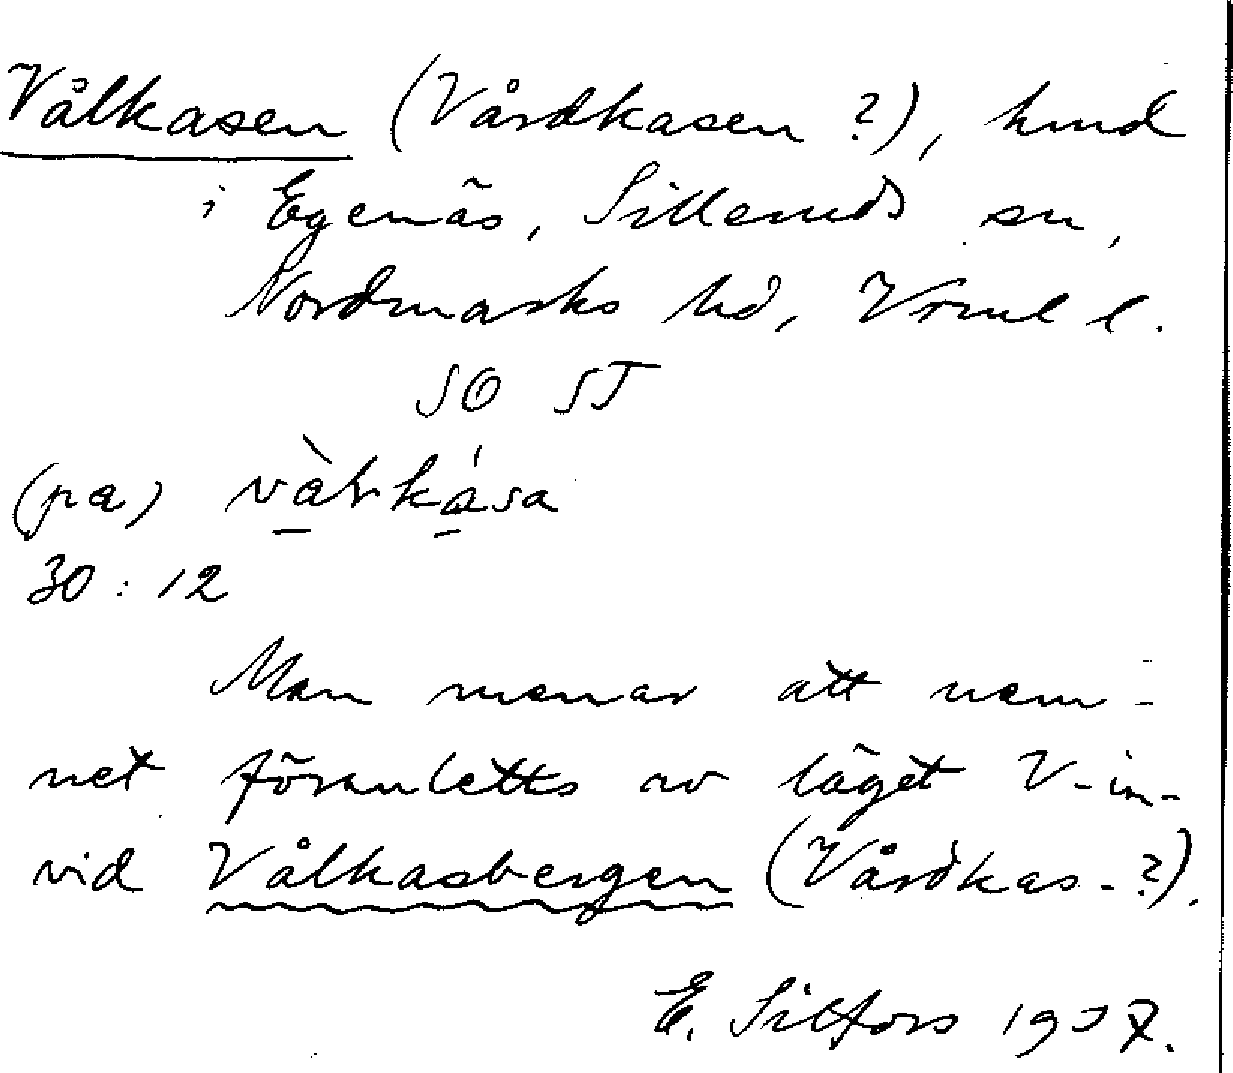 Vålkasen (Vårdkasen ?), hmd
i Egenäs, Silleruds sn,
Nordmarks hd, Vrml l.
SO ST
(pa)
30 : 12
Man menar att nam-
net föranletts av läget V-in-
vid Vålkasbergen (Vårdkas-?).
E. Silfors 1937.